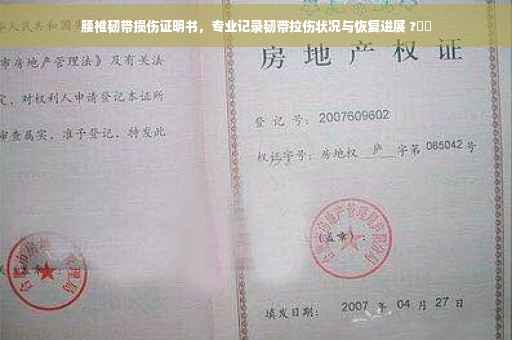 腰椎韧带损伤证明书，专业记录韧带拉伤状况与恢复进展 ?
人民共和国
市房地产管理法》及有关法
定，对权利人申请登记本证所
审查属实，准予登记，特发此
房地产权证
登记号：2007609602
权证字号：房地权 庐 字第 065042 号
(盖章)：
填发日期：2007 年 04 月 27 日